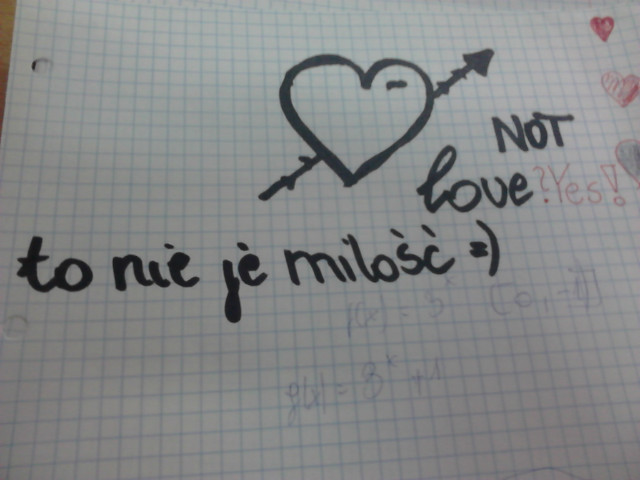 NOT
love?Yes!
to nie je milość =)
g(x) = 3^x + 1